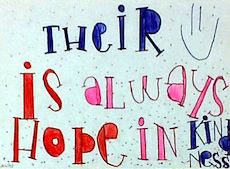 THeiR
is ALways
HOpe iN KiND
Ness